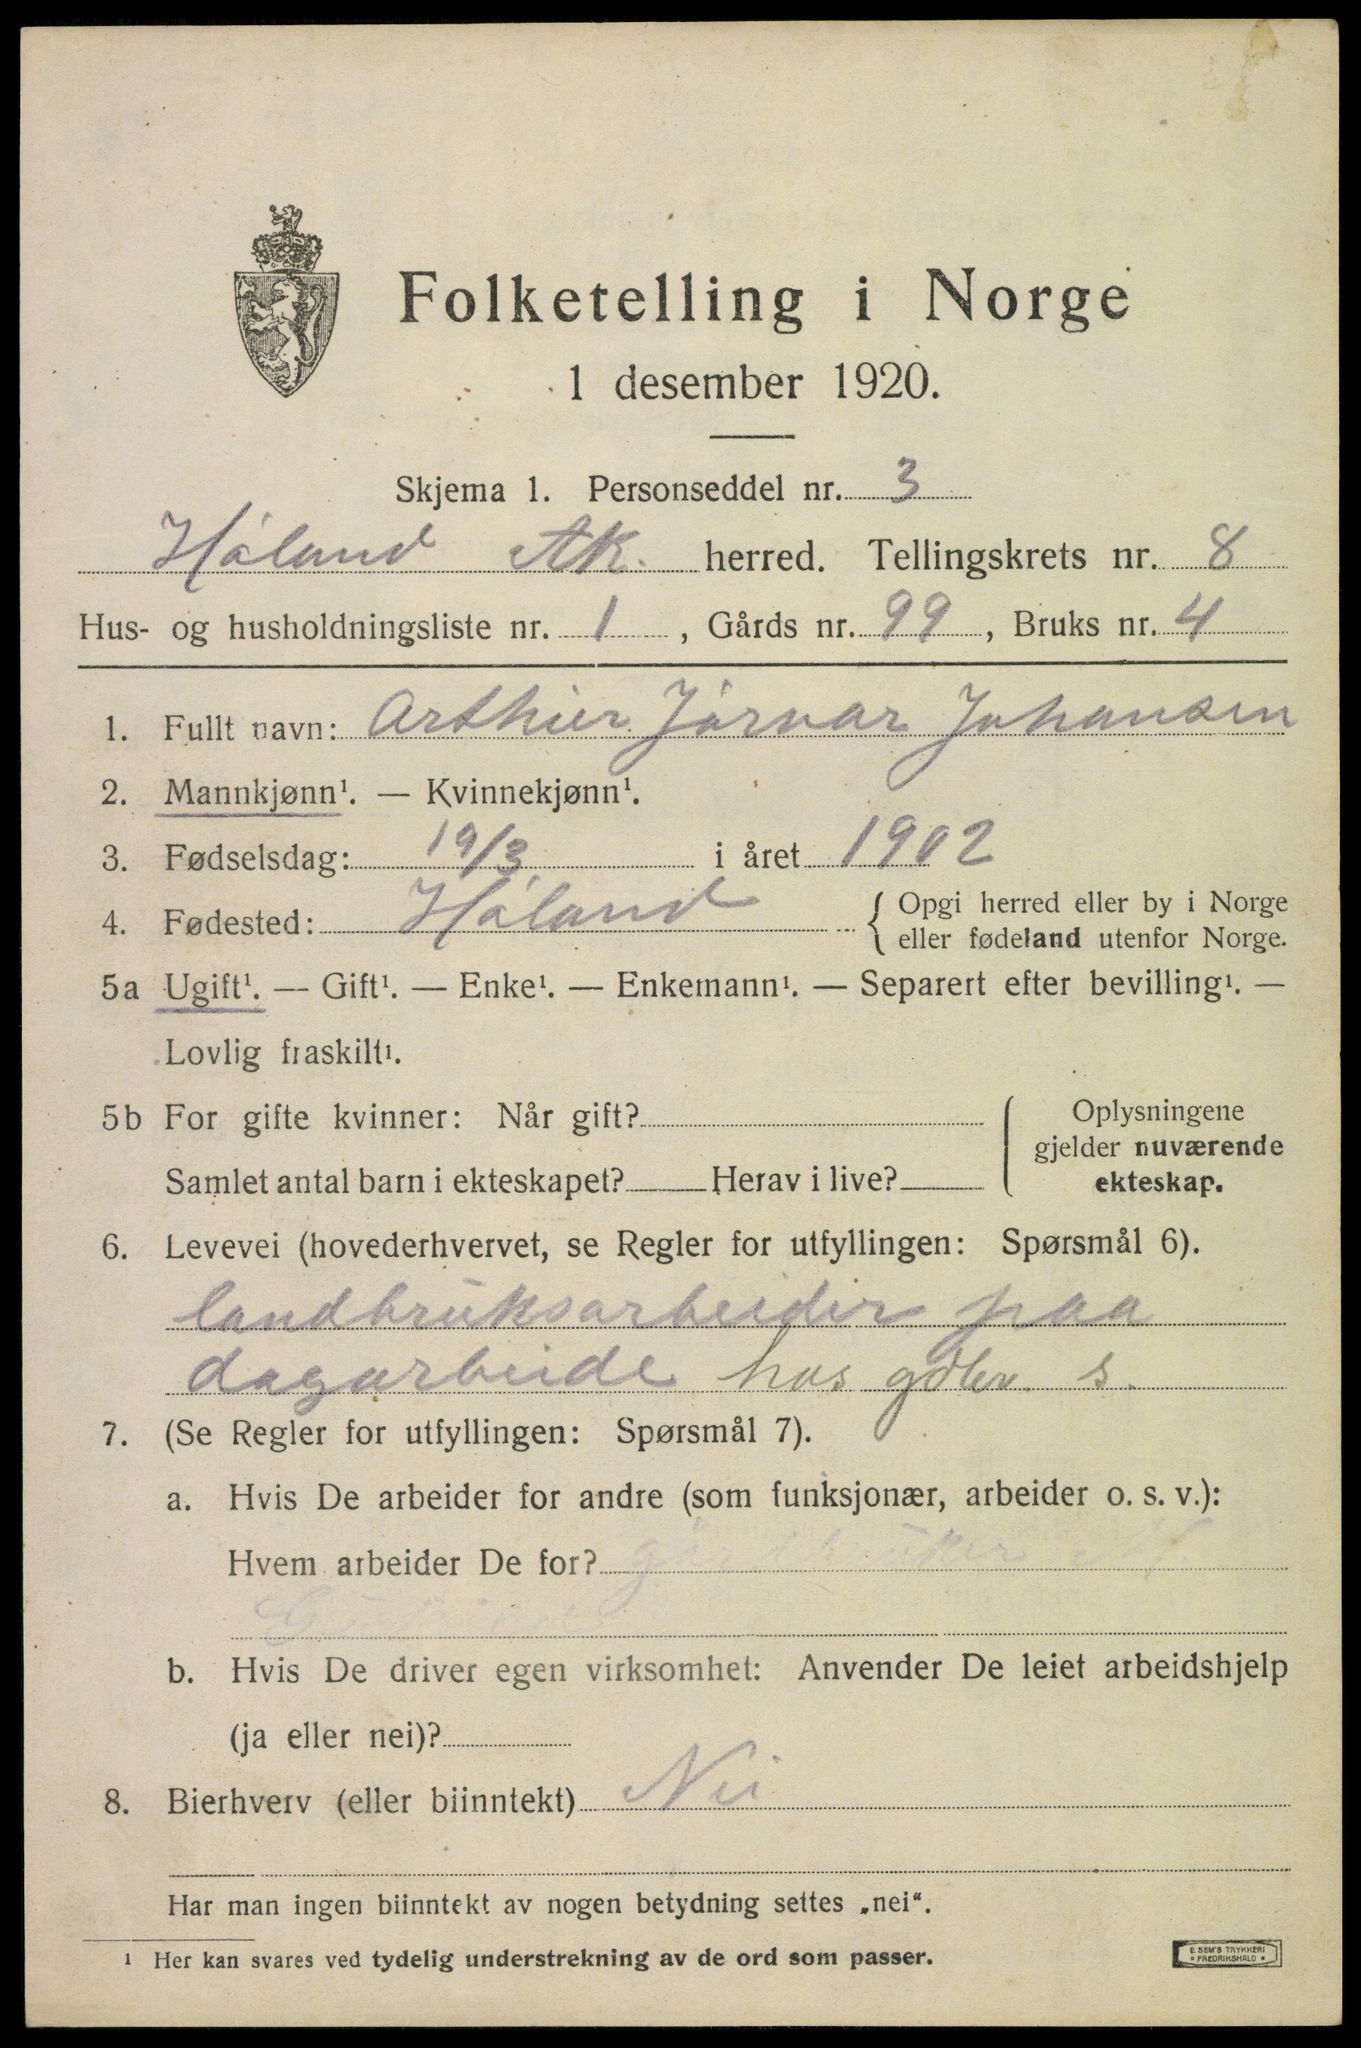 Folketelling i Norge
1 desember 1920.
Skjema 1. Personseddel nr. 3
Høland Ak. herred. Tellingskrets nr. 8
Hus- og husholdningsliste nr. 1, Gårds nr. 99, Bruks nr. 4
1. Fullt navn: Arthur Jørvar Johansen
2. Mannkjønn¹. — Kvinnekjønn¹.
3. Fødselsdag: 19/3 i året 1902
4. Fødested: Høland { Opgi herred eller by i Norge
eller fødeland utenfor Norge.
5a Ugift¹. — Gift¹. — Enke¹. — Enkemann¹. — Separert efter bevilling¹. —
Lovlig fraskilt¹.
5b For gifte kvinner: Når gift?
Samlet antal barn i ekteskapet? Herav i live?
Oplysningene
gjelder nuværende
ekteskap.
6. Levevei (hovederhvervet, se Regler for utfyllingen: Spørsmål 6).
landbruksarbeider paa
dagarbeide hos gdbr. s.
7. (Se Regler for utfyllingen: Spørsmål 7).
a. Hvis De arbeider for andre (som funksjonær, arbeider o. s. v.):
Hvem arbeider De for? gårdbruker
b. Hvis De driver egen virksomhet: Anvender De leiet arbeidshjelp
(ja eller nei)?
8. Bierhverv (eller biinntekt) Nei
Har man ingen biinntekt av nogen betydning settes „nei".
¹ Her kan svares ved tydelig understrekning av de ord som passer.
E. SEM'S TRYKKERI
• FREDRIKSHALD •